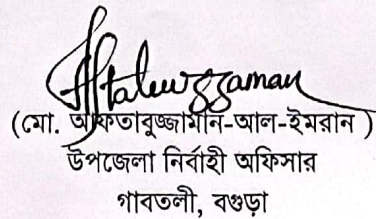 Aftabuzzaman
(মো. আফতাবুজ্জামান-আল-ইমরান )
উপজেলা নির্বাহী অফিসার
গাবতলী, বগুড়া